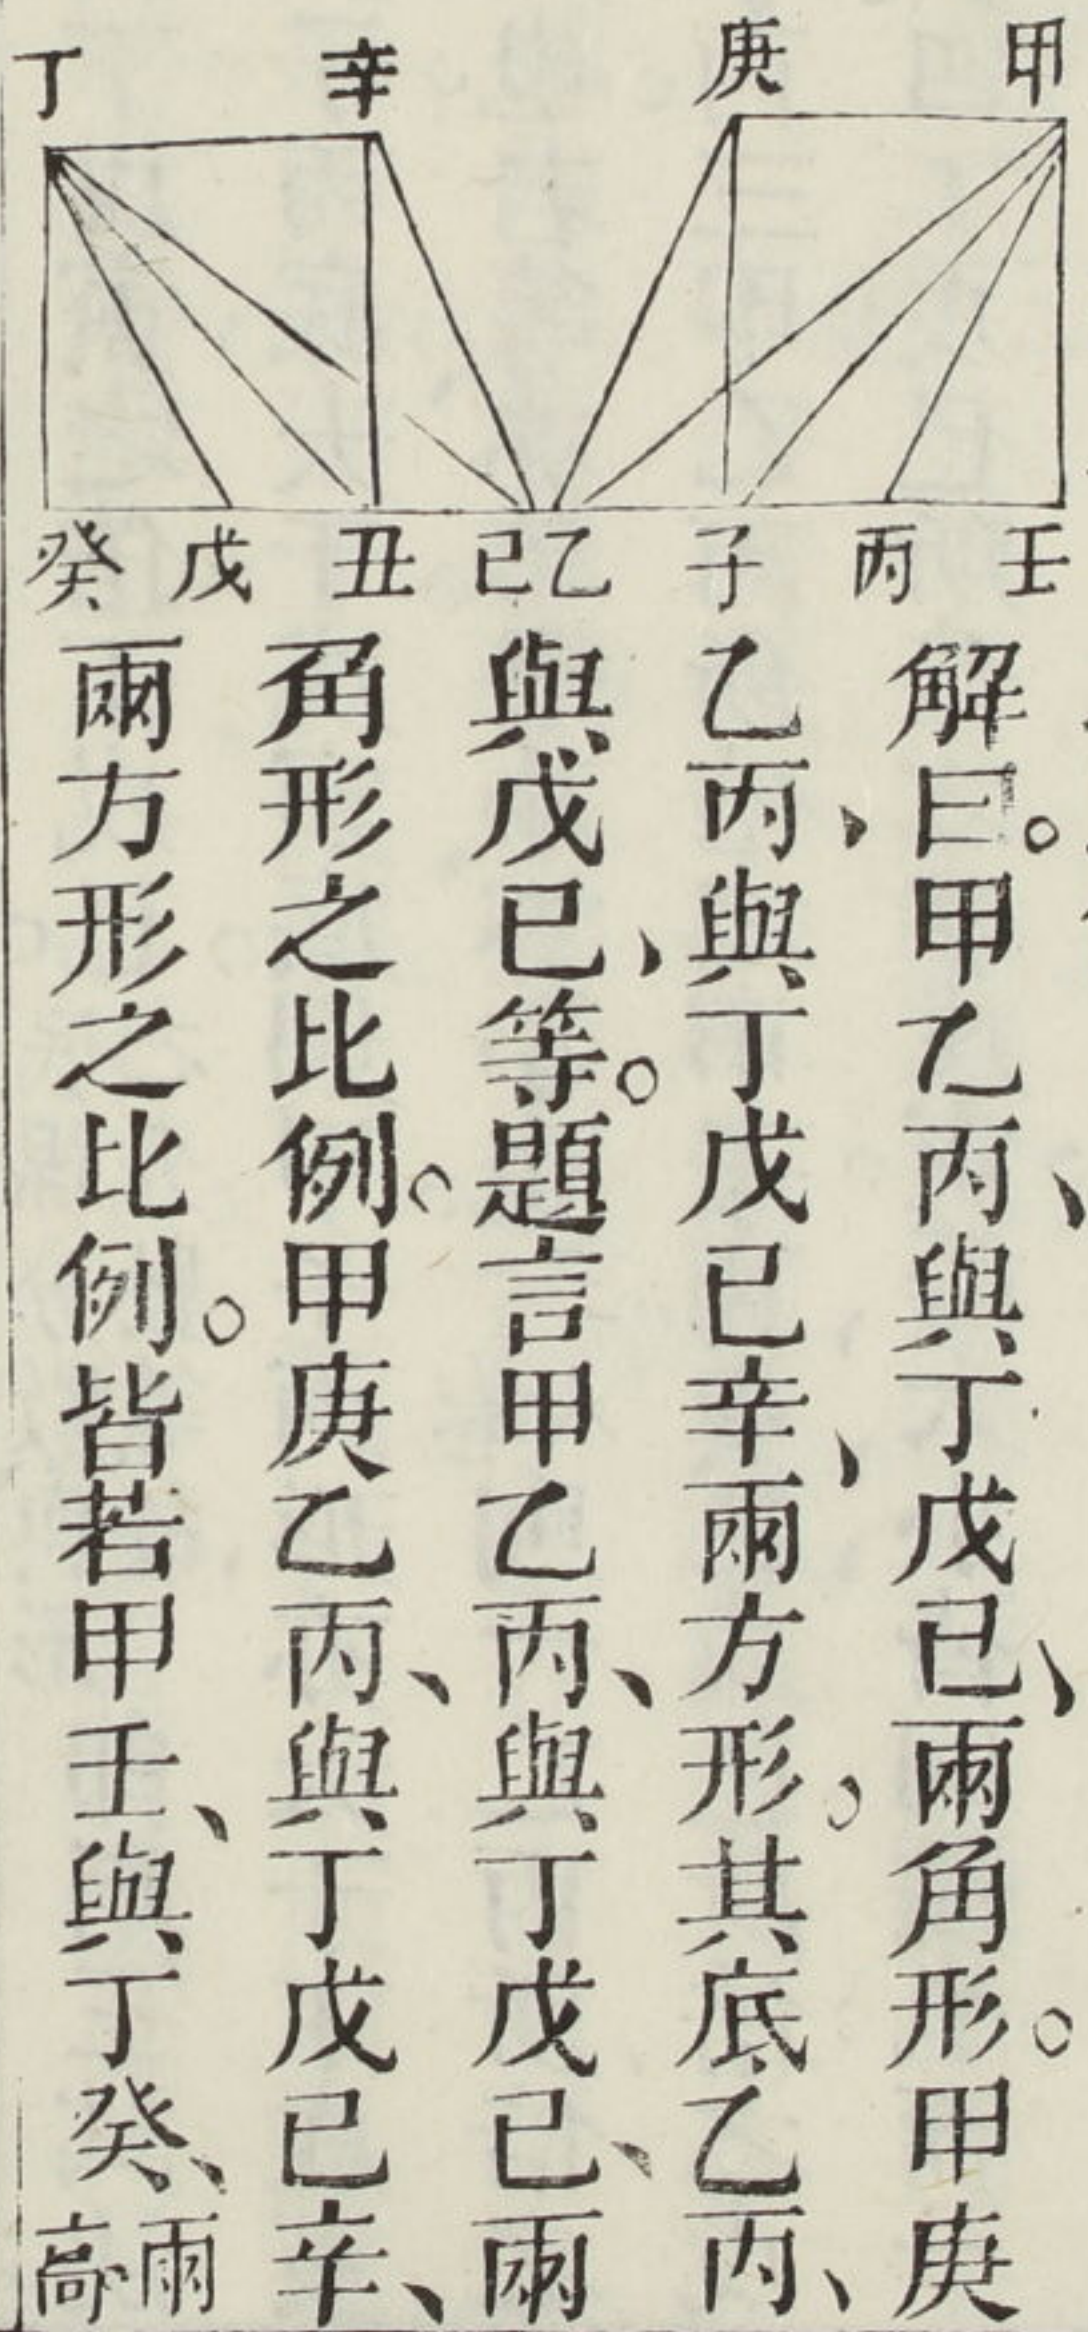 甲 庚 辛 丁
壬 丙 子 乙 己 丑 戊 癸
解曰。甲乙丙、與丁戊己、兩角形。甲庚
乙丙、與丁戊己辛、兩方形。其底乙丙、
與戊己、等。題言甲乙丙、與丁戊己、兩
角形之比例。甲庚乙丙、與丁戊己辛、
兩方形之比例。皆若甲壬、與丁癸、兩
高